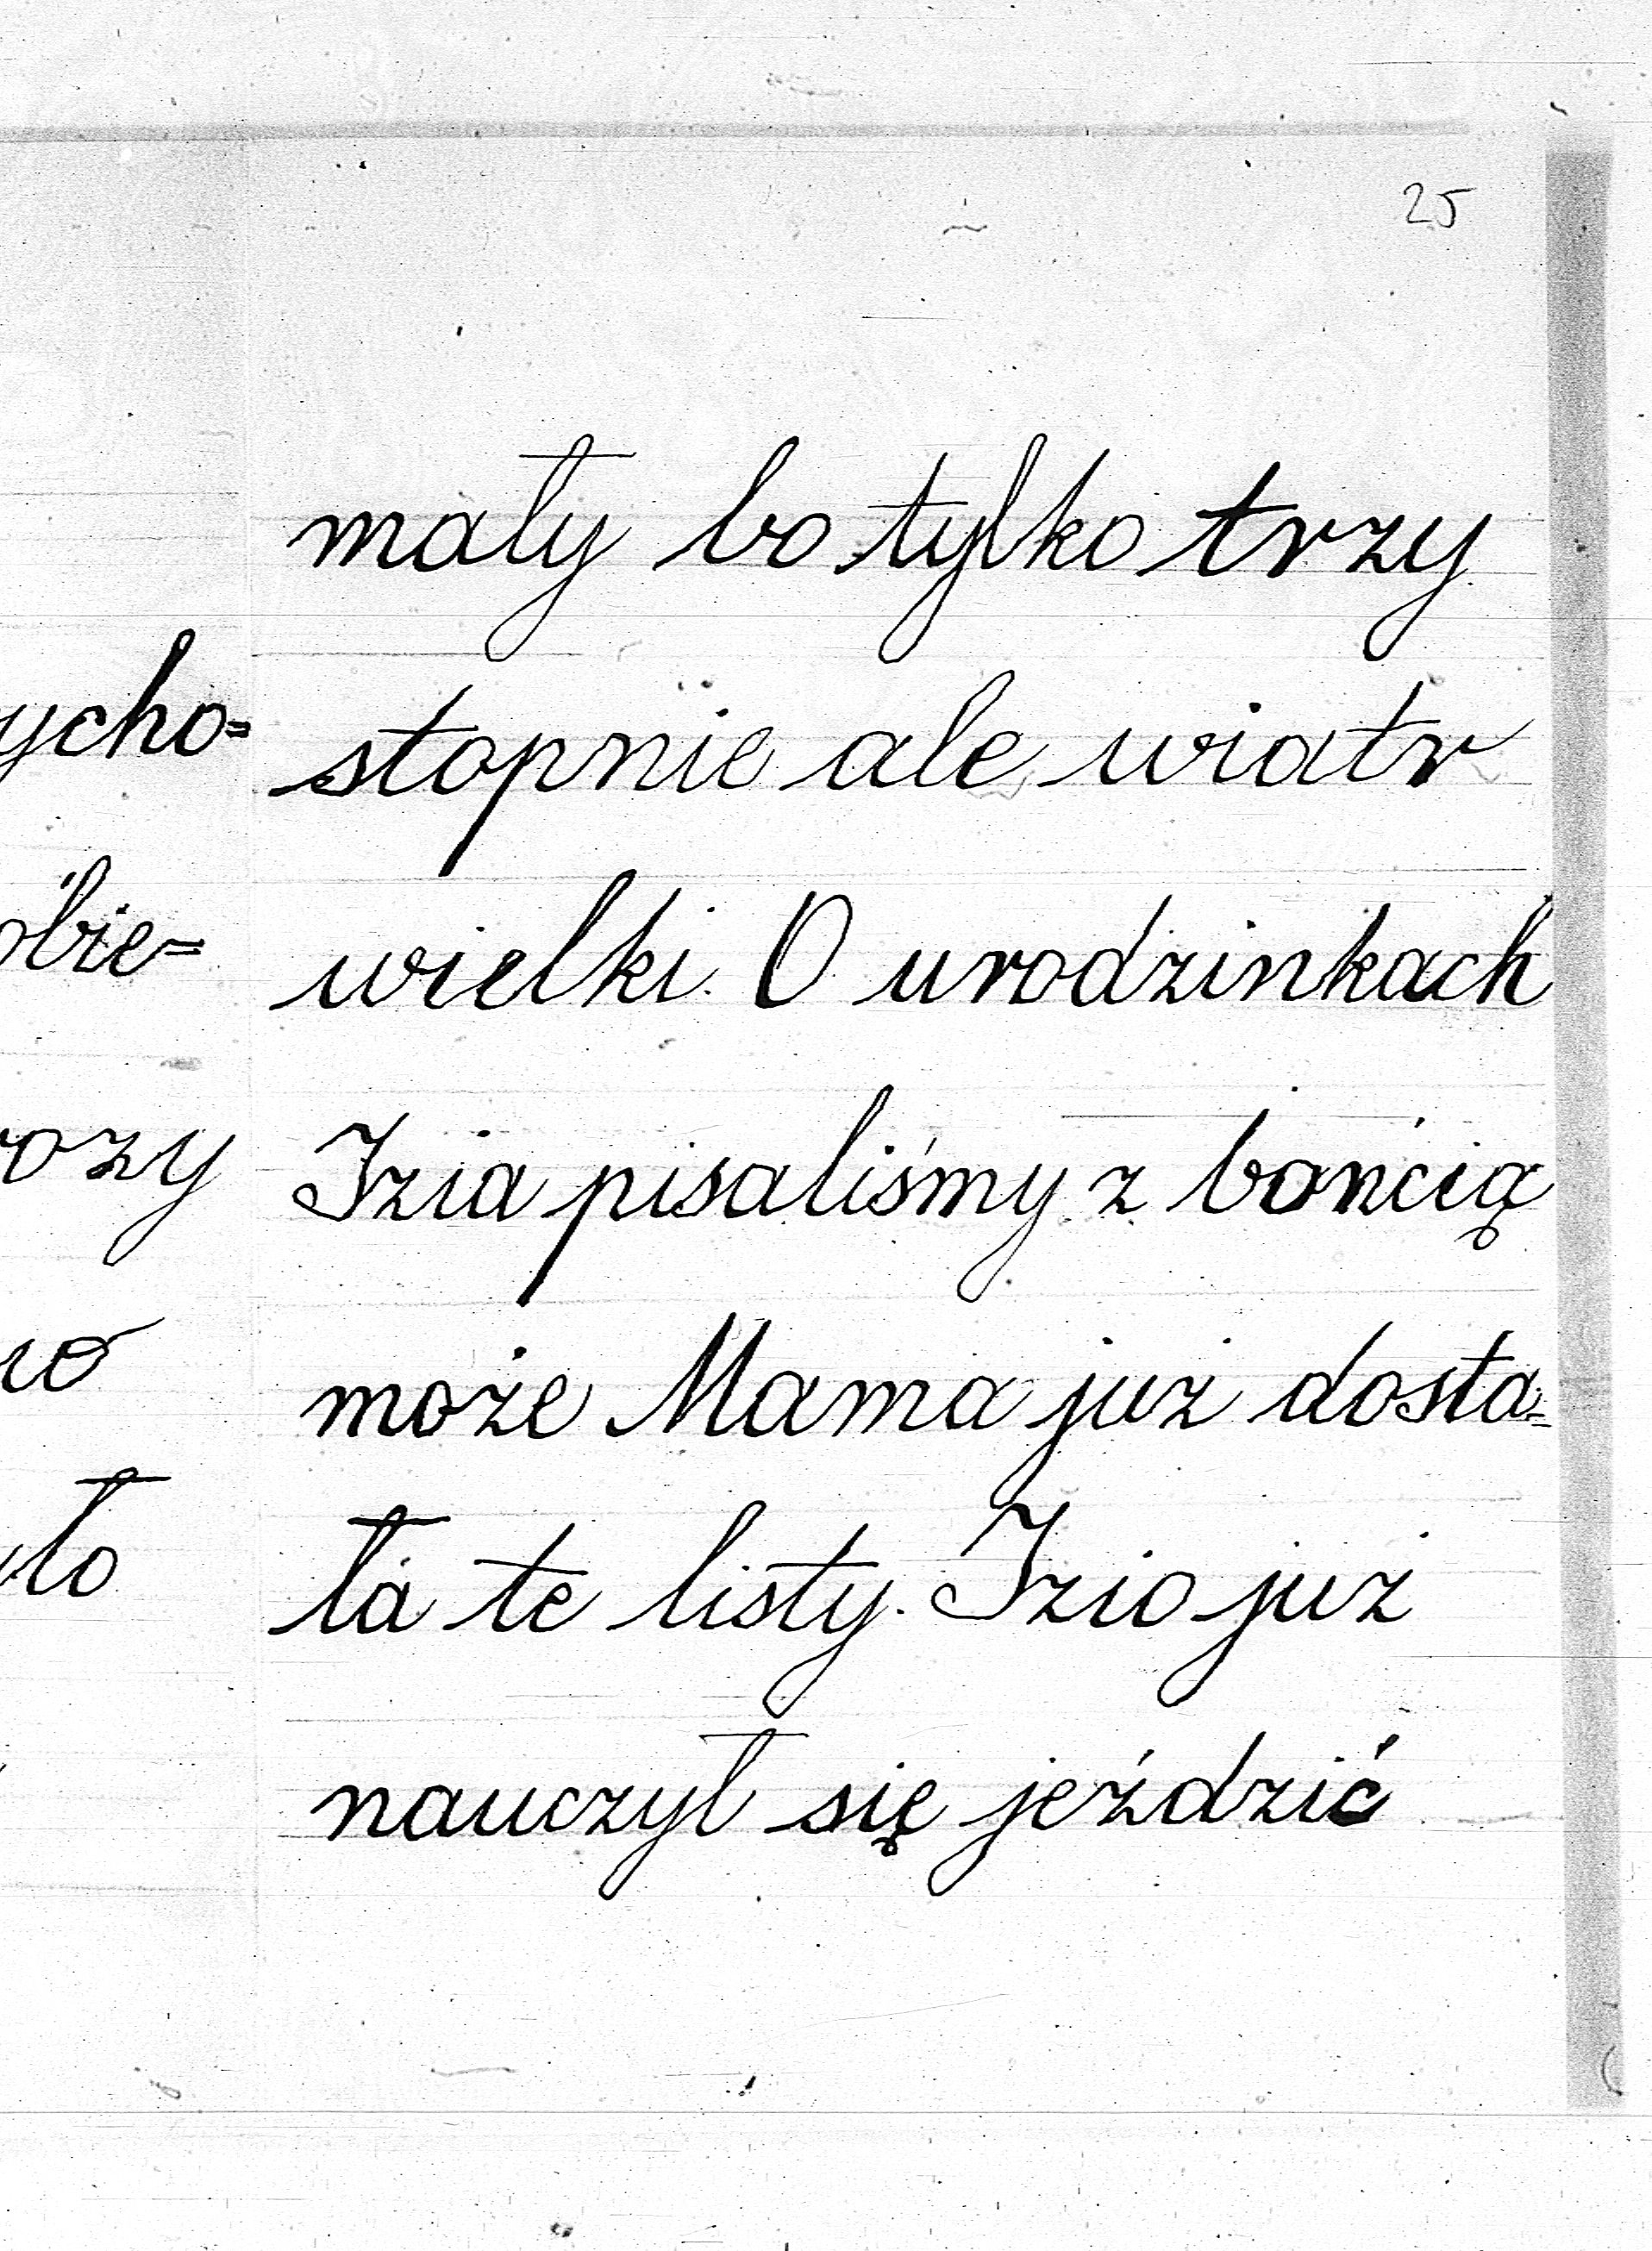 25
mały bo tylko trzy
stopnie ale wiatr
wielki. O urodzinkach
Izia pisaliśmy z bońcią
może Mama już dosta=
ła te listy. Izio już
nauczył się jeździć
ycho=
obie=
rozy
no
ło